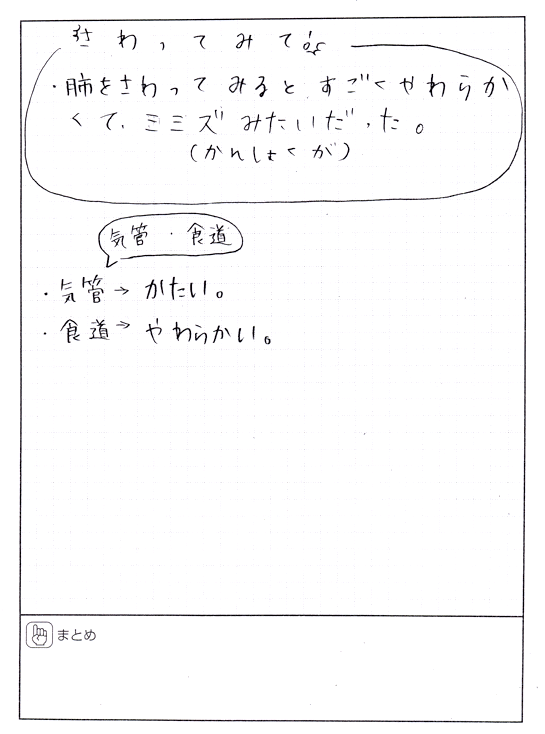 さわってみて
・肺をさわってみるとすごくやわらか
くて、ミミズみたいだった。
(かんしょくが)
気管・食道
・気管→かたい。
・食道→やわらかい。
まとめ